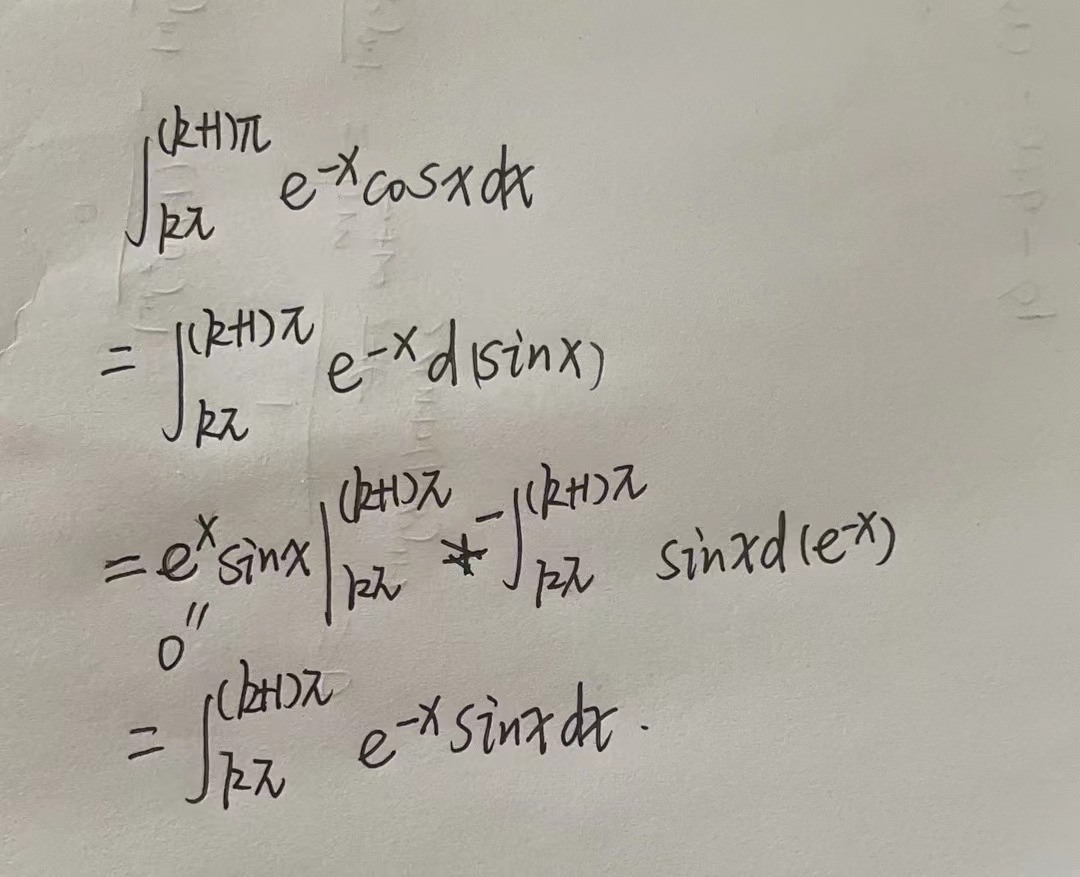 ∫_{kπ}^{(k+1)π} e^{-x} cosx dx
= ∫_{kπ}^{(k+1)π} e^{-x} d(sinx)
= e^x sinx |_{kπ}^{(k+1)π} - ∫_{kπ}^{(k+1)π} sinx d(e^{-x})
0 "
= ∫_{kπ}^{(k+1)π} e^{-x} sinx dx.